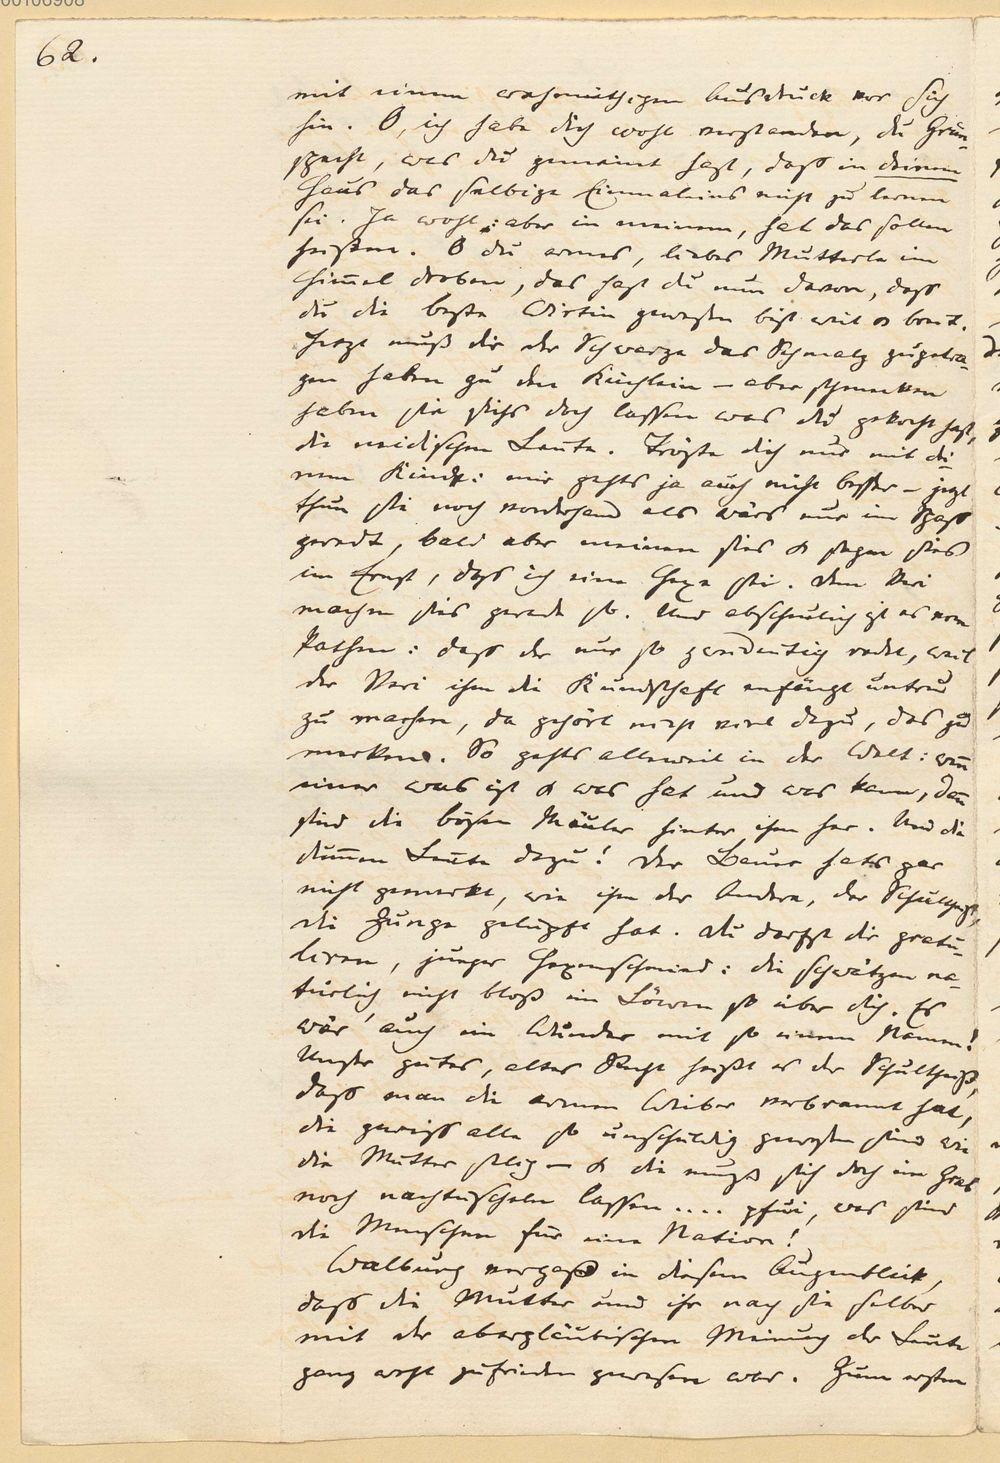 00106908
62.
mit einem wehmüthigen Ausdruck vor sich
hin. O, ich habe dich wohl verstanden, du Grün-
specht, was du gemeint hast, daß in deinem
Haus das selbige Einmaleins nicht zu lernen
sei. Ja wohl: aber in meinem, hat das sollen
heißen. O du armes, liebes Mutterle im
Himel droben, das hast du nun davon, daß
du die beste Wirtin gewesen bist weit & breit.
Jetzt muß dir der Schwarze das Schmalz zugetra-
gen haben zu den Küchlein – aber schmecken
haben sie sichs doch lassen was du gekocht hast,
die neidischen Leute. Tröste dich nur mit dei-
nem Kinde: mir gehts ja auch nicht besser – jetzt
thun sie noch vorderhand als wärs nur im Spaß
geredt, bald aber meinen sies & sagen sies
im Ernst, daß ich eine Hexe sei. Dem Veri
machen sies gerade so. Und abscheulich ist es vom
Pathen: daß der nur so zweideutig redet, weil
der Veri ihm die Kundschaft anfängt untreu
zu machen, da gehört nicht viel dazu, das zu
merken. So gehts alleweil in der Welt: wen
einer was ist & was hat und was kann, dan
sind die bösen Mäuler hinter ihm her. Und die
dumen Leute dazu! Der Bauer hats gar
nicht gemerkt, wie ihm der Andere, der Schultheiß,
die Zunge gelupft hat. Du darfst dir gratu-
liren, junger Hexenschmied: die schwätzen na-
türlich nicht bloß im Löwen so über dich. Es
wär' auch ein Wunder mit so einem Namen!
Unser gutes, altes Recht heißt es der Schultheiß,
daß man die armen Weiber verbrannt hat,
die gewiß alle so unschuldig gewesen sind wie
die Mutter selig – & die muß sich doch im Grab
noch nachtuscheln lassen .... pfui, was sind
die Menschen für eine Nation!
Walburg vergaß in diesem Augenblick,
daß die Mutter und ihr nach sie selber
mit der abergläubischen Meinung der Leute
ganz wohl zufrieden gewesen war. Zum ersten